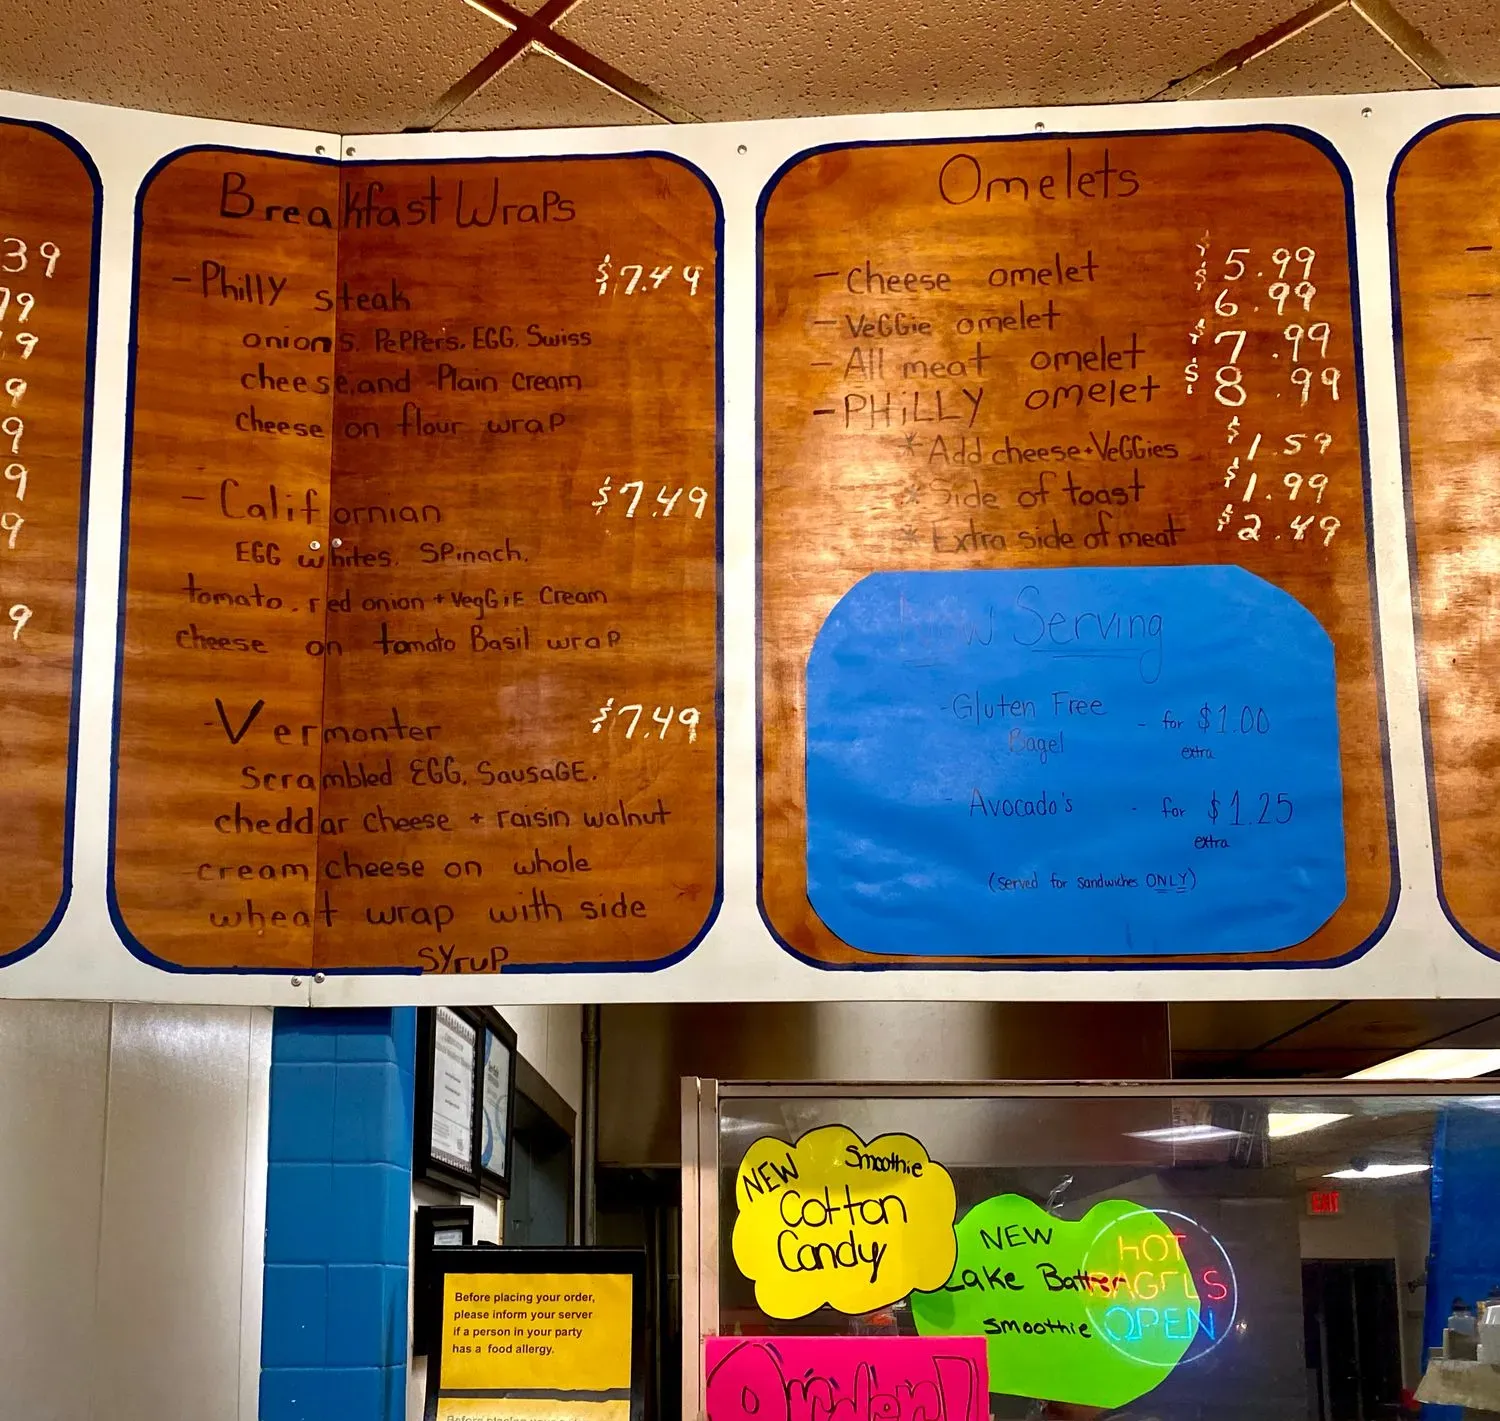 39
79
9
9
9
9
9
9
Breakfast Wraps
- Philly steak $7.49
onions, PePPers, EGG, Swiss
cheese, and Plain Cream
cheese on flour wrap
- Californian $7.49
EGG whites, SPinach,
tomato, red onion + vegGiE Cream
cheese on tomato Basil wrap
- Vermonter $7.49
Scrambled EGG, SausaGE,
cheddar cheese + raisin walnut
cream cheese on whole
wheat wrap with side
syruP
Omelets
- cheese omelet $5.99
- VeGGie omelet $6.99
- All meat omelet $7.99
- PHiLLY omelet $8.99
* Add cheese + VeGGies $1.59
* Side of toast $1.99
* Extra side of meat $2.49
Now Serving
- Gluten Free Bagel - for $1.00 extra
- Avocado's - for $1.25 extra
(served for sandwiches ONLY)
NEW Smoothie
Cotton
Candy
NEW
Cake Batter
smoothie
HOT
BAGELS
OPEN
EXIT
Before placing your order,
please inform your server
if a person in your party
has a food allergy.